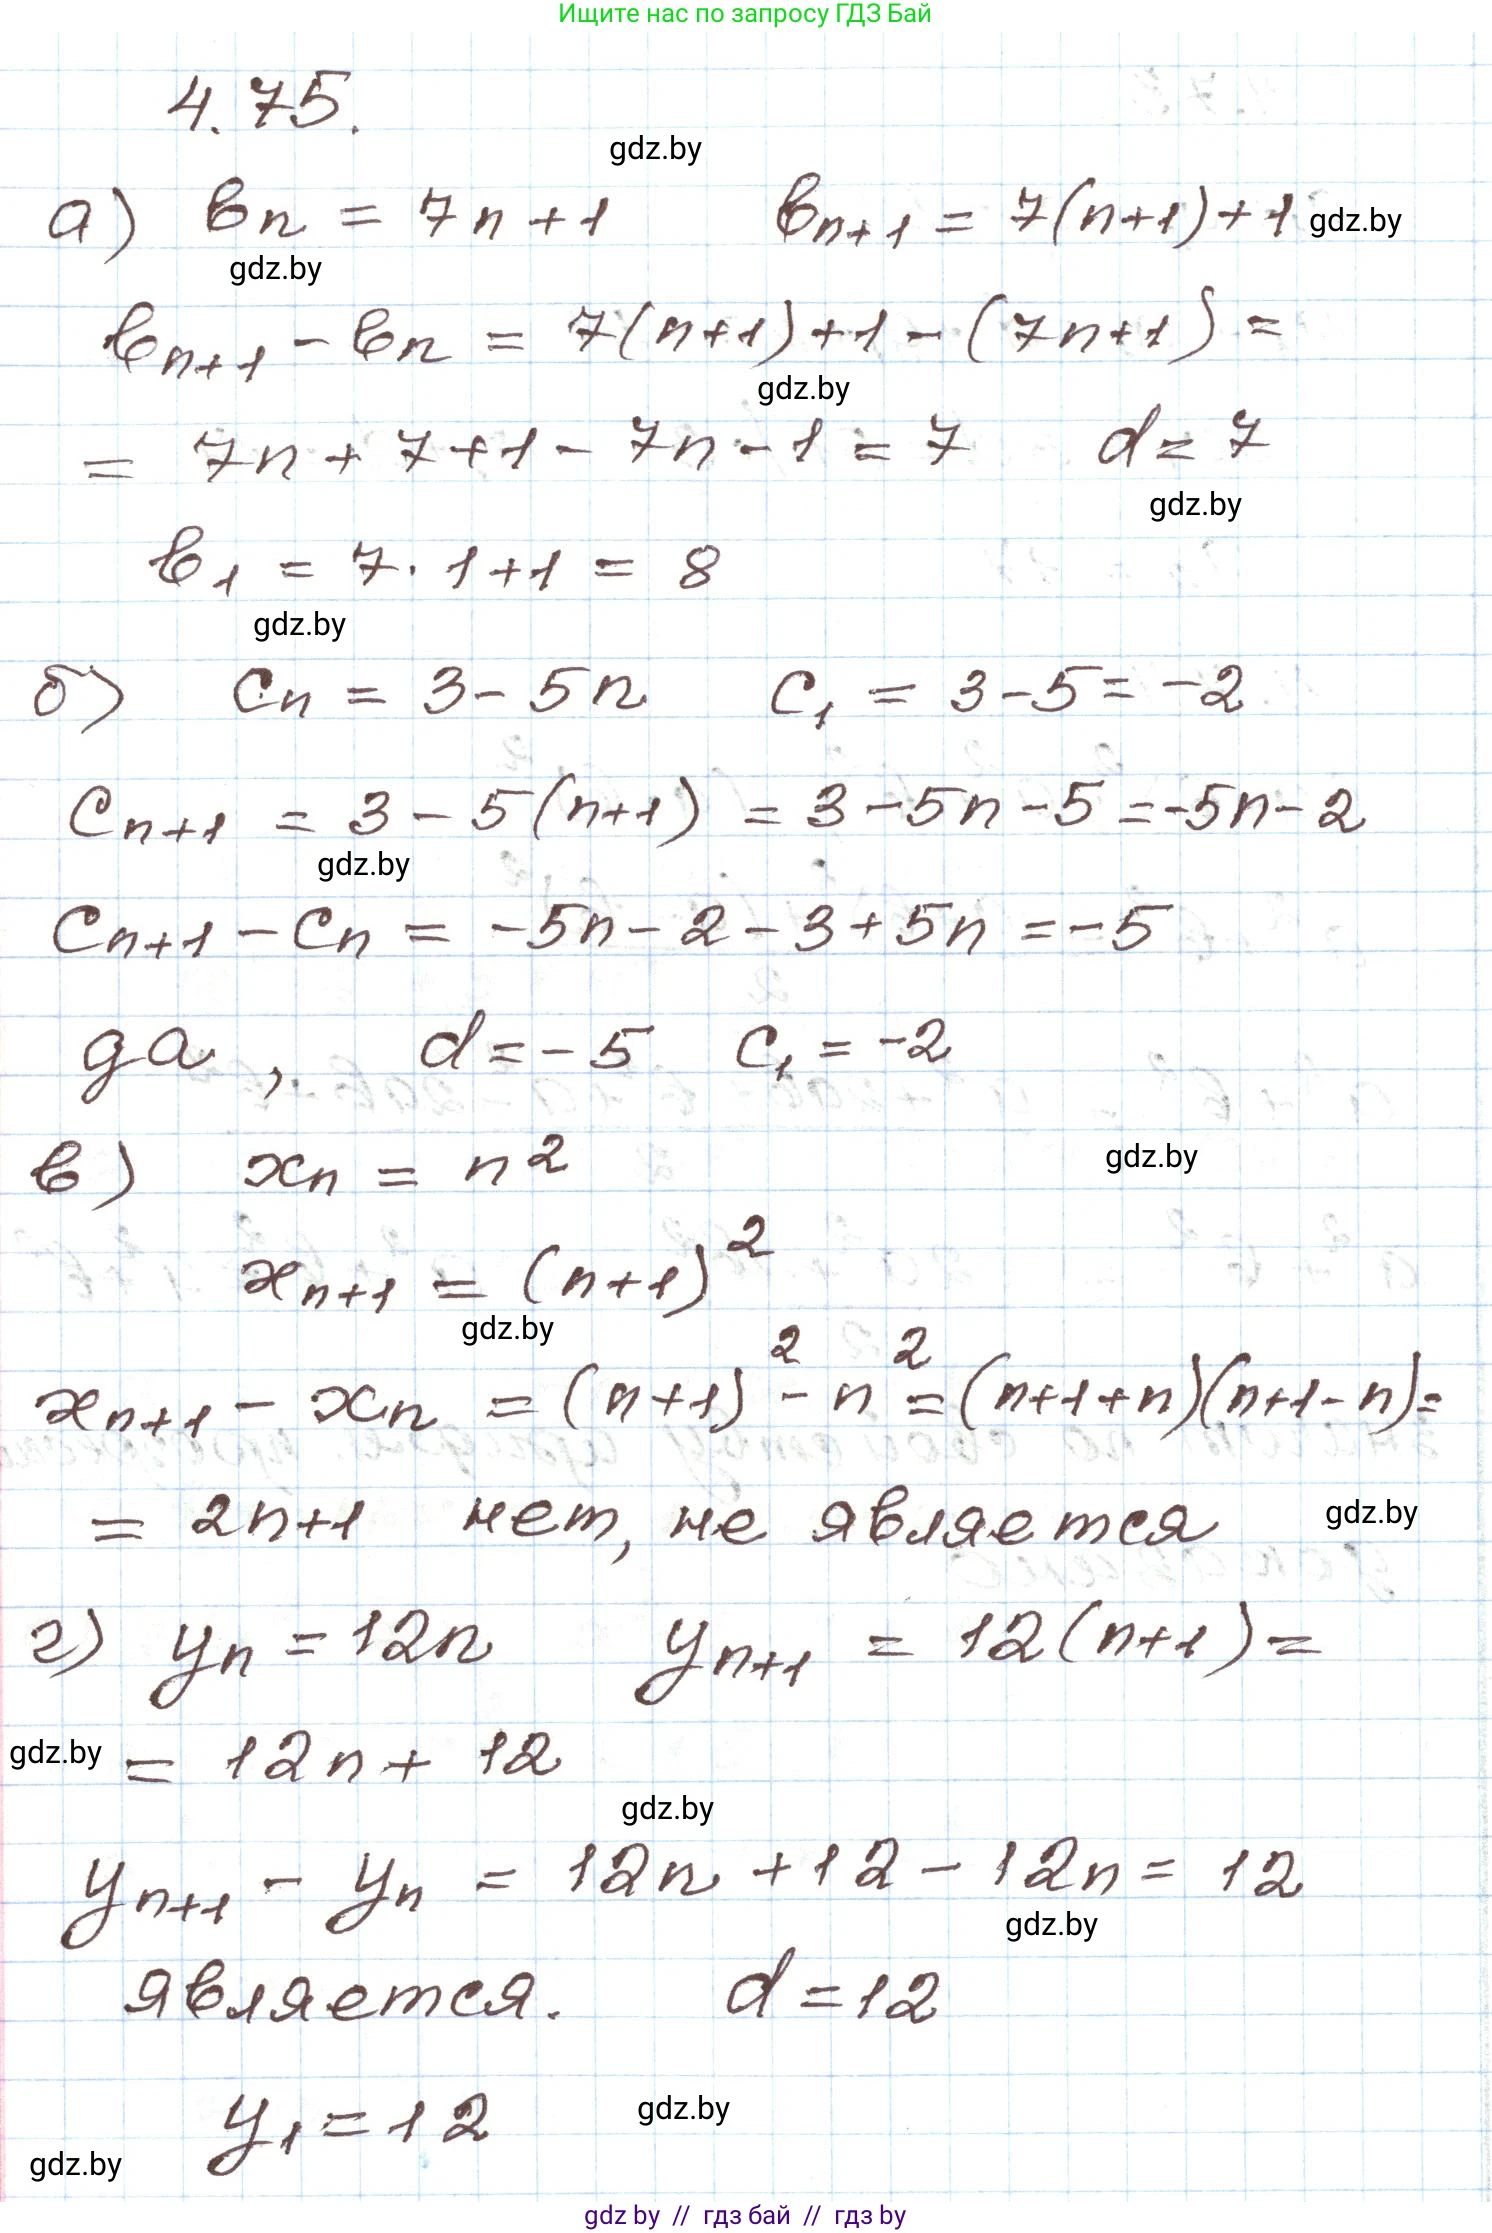 Ищите нас по запросу ГДЗ Бай
4.75.
gdz.by
а) bn = 7n+1 bn+1 = 7(n+1)+1 gdz.by
gdz.by
bn+1 - bn = 7(n+1)+1-(7n+1) =
gdz.by
= 7n+7+1-7n-1 = 7 d=7
gdz.by
b1 = 7·1+1 = 8
gdz.by
б) cn = 3-5n c1 = 3-5=-2
cn+1 = 3-5(n+1) = 3-5n-5=-5n-2
gdz.by
cn+1 - cn = -5n-2-3+5n =-5
да, d=-5 c1=-2
в) xn = n² gdz.by
xn+1 = (n+1)²
gdz.by
xn+1 - xn = (n+1)² - n² = (n+1+n)(n+1-n) =
= 2n+1 нет, не является gdz.by
г) yn = 12n yn+1 = 12(n+1) =
gdz.by = 12n + 12
gdz.by
yn+1 - yn = 12n +12-12n = 12
gdz.by
является. d=12
y1=12 gdz.by
gdz.by
gdz by // гдз бай // гдз by